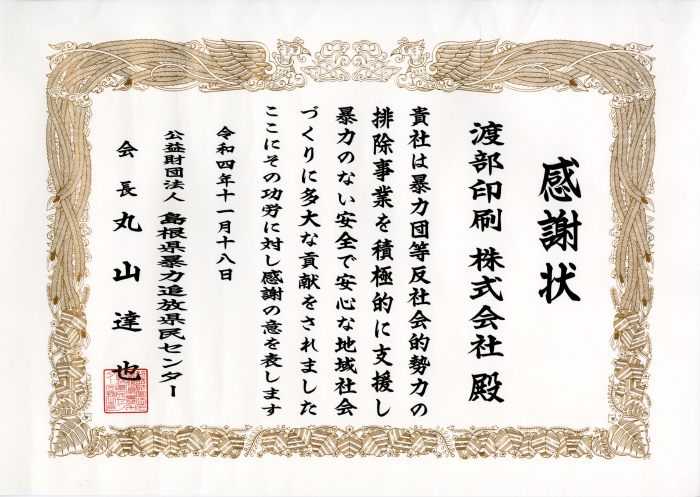 感謝状
渡部印刷 株式会社 殿
貴社は暴力団等反社会的勢力の
排除事業を積極的に支援し
暴力のない安全で安心な地域社会
づくりに多大な貢献をされました
ここにその功労に対し感謝の意を表します
令和四年十一月十八日
公益財団法人 島根県暴力追放県民センター
会長 丸山達也